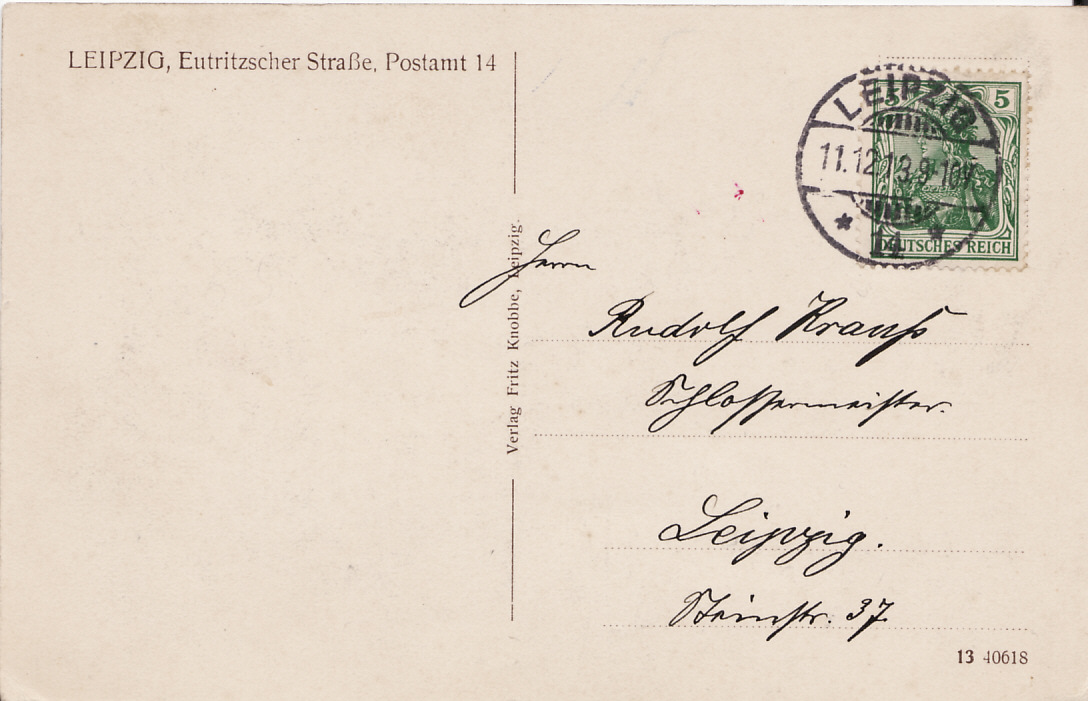 LEIPZIG, Eutritzscher Straße, Postamt 14
LEIPZIG
11.12.13.9-10V.
* 14 *
5 5
DEUTSCHES REICH
Verlag Fritz Knobbe, Leipzig.
Herrn
Rudolf Krauß
Schlossermeister.
Leipzig.
Steinstr. 37.
13 40618